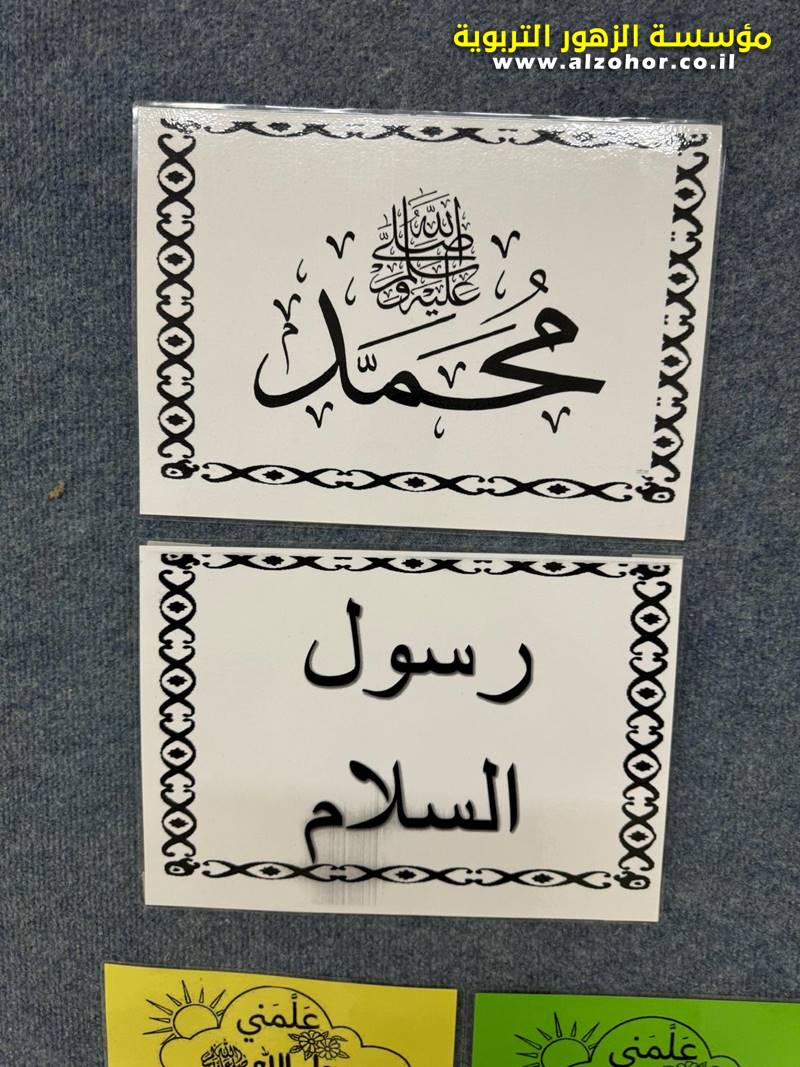 مؤسسة الزهور التربوية
www.alzohor.co.il
صلى الله عليه وسلم
مُحَمَّد
رسول
السلام
عَلَّمَني
عَلَّمَني